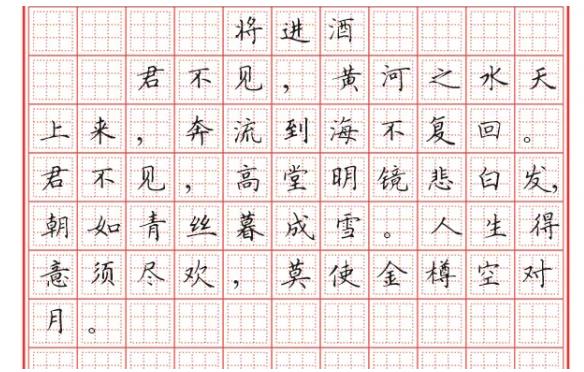 将进酒
君不见，黄河之水天
上来，奔流到海不复回。
君不见，高堂明镜悲白发，
朝如青丝暮成雪。人生得
意须尽欢，莫使金樽空对
月。